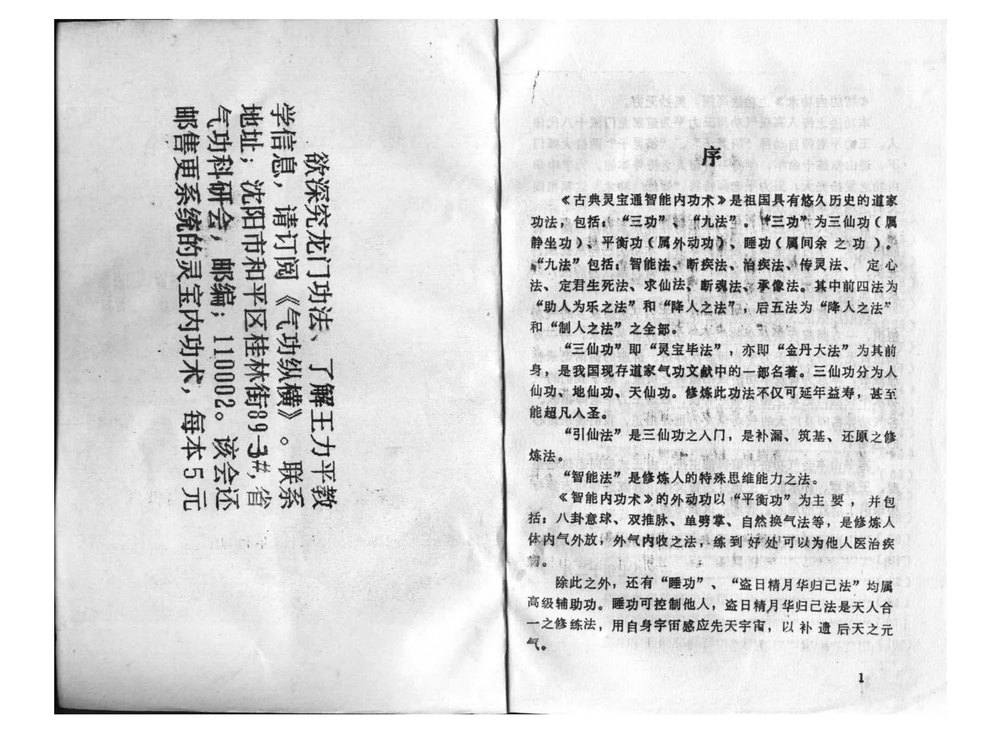 欲深究龙门功法、了解王力平教
学信息，请订阅《气功纵横》。联系
地址；沈阳市和平区桂林街89-3#，省
气功科研会，邮编；110002。该会还
邮售更系统的灵宝内功术，每本5元
序
《古典灵宝通智能内功术》是祖国具有悠久历史的道家
功法，包括：“三功”、“九法”。“三功”为三仙功（属
静坐功）、平衡功（属外动功）、睡功（属间余之功）。
“九法”包括：智能法、断疾法、治疾法、传灵法、定心
法、定君生死法、求仙法、断魂法、承像法。其中前四法为
“助人为乐之法”和“降人之法”，后五法为“降人之法”
和“制人之法”之全部。
“三仙功”即“灵宝毕法”，亦即“金丹大法”为其前
身，是我国现存道家气功文献中的一部名著。三仙功分为人
仙功、地仙功、天仙功。修炼此功法不仅可延年益寿，甚至
能超凡入圣。
“引仙法”是三仙功之入门，是补漏、筑基、还原之修
炼法。
“智能法”是修炼人的特殊思维能力之法。
《智能内功术》的外动功以“平衡功”为主要，并包
括：八卦意球、双推脉、单劈掌、自然换气法等，是修炼人
体内气外放，外气内收之法，练到好处可以为他人医治疾
病。
除此之外，还有“睡功”、“盗日精月华归己法”均属
高级辅助功。睡功可控制他人，盗日精月华归己法是天人合
一之修练法，用自身宇宙感应先天宇宙，以补遗后天之元
气。
1